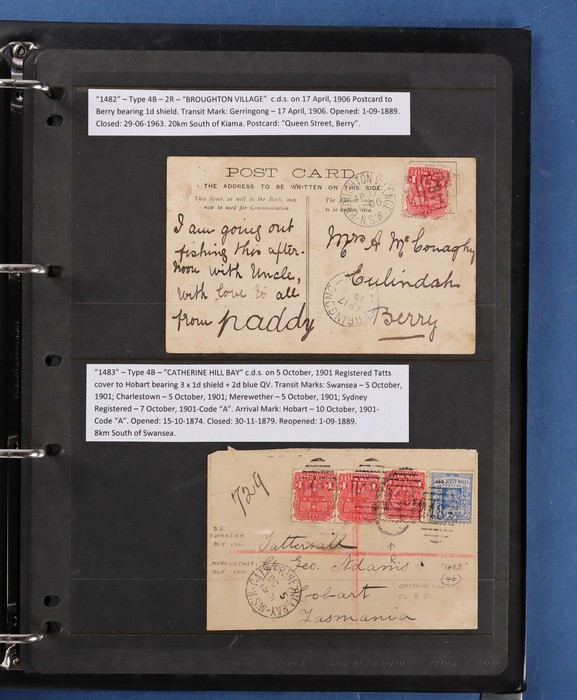 "1482" – Type 4B – 2R – "BROUGHTON VILLAGE" c.d.s. on 17 April, 1906 Postcard to
Berry bearing 1d shield. Transit Mark: Gerringong – 17 April, 1906. Opened: 1-09-1889.
Closed: 29-06-1963. 20km South of Kiama. Postcard: "Queen Street, Berry".
POST CARD.
THE ADDRESS TO BE WRITTEN ON THIS SIDE.
This Space, as well as the Back, may
now be used for Communication.
I am going out
fishing this after-
noon with Uncle,
with love to all
from paddy
Mrs A McConaghy
Culindah
Berry
"1483" – Type 4B – "CATHERINE HILL BAY" c.d.s. on 5 October, 1901 Registered Tatts
cover to Hobart bearing 3 x 1d shield + 2d blue QV. Transit Marks: Swansea – 5 October,
1901; Charlestown – 5 October, 1901; Merewether – 5 October, 1901; Sydney
Registered – 7 October, 1901-Code "A". Arrival Mark: Hobart – 10 October, 1901-
Code "A". Opened: 15-10-1874. Closed: 30-11-1879. Reopened: 1-09-1889.
8km South of Swansea.
729
Tattersall
Geo. Adams
Hobart
Tasmania
SWANSEA
MEREWETHER
"1483"
4B